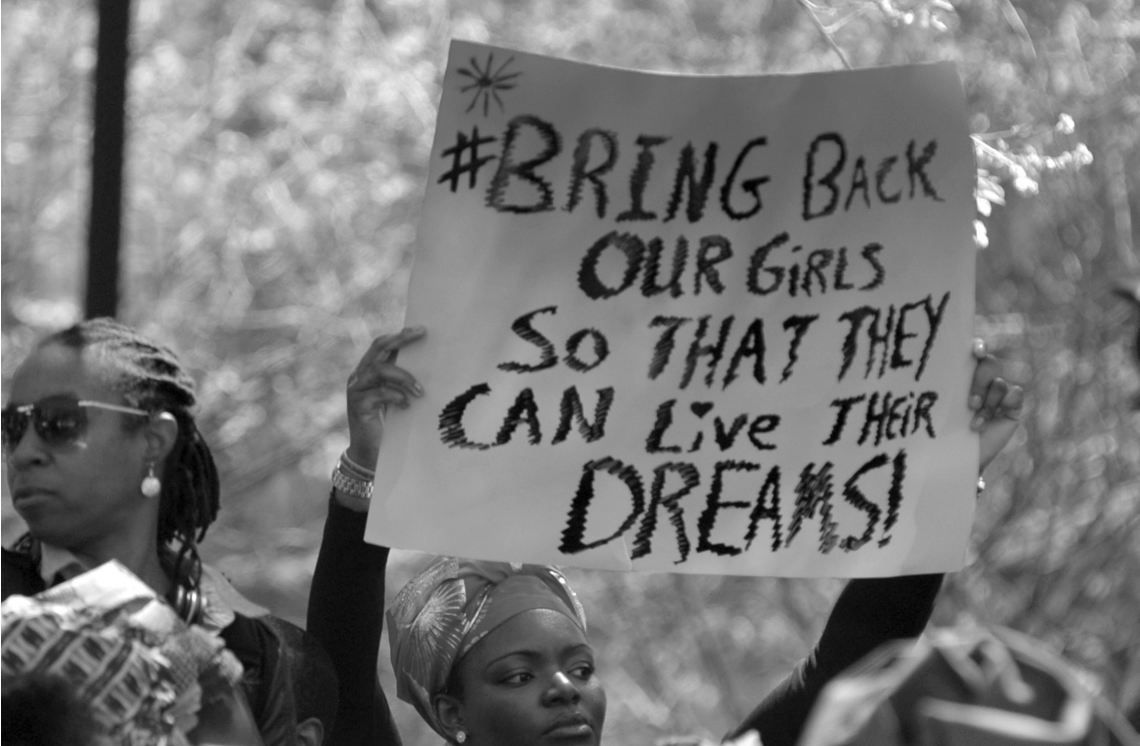 #BRING BACK
OUR GiRLS
So THAT THEY
CAN Live THEiR
DREAMS!